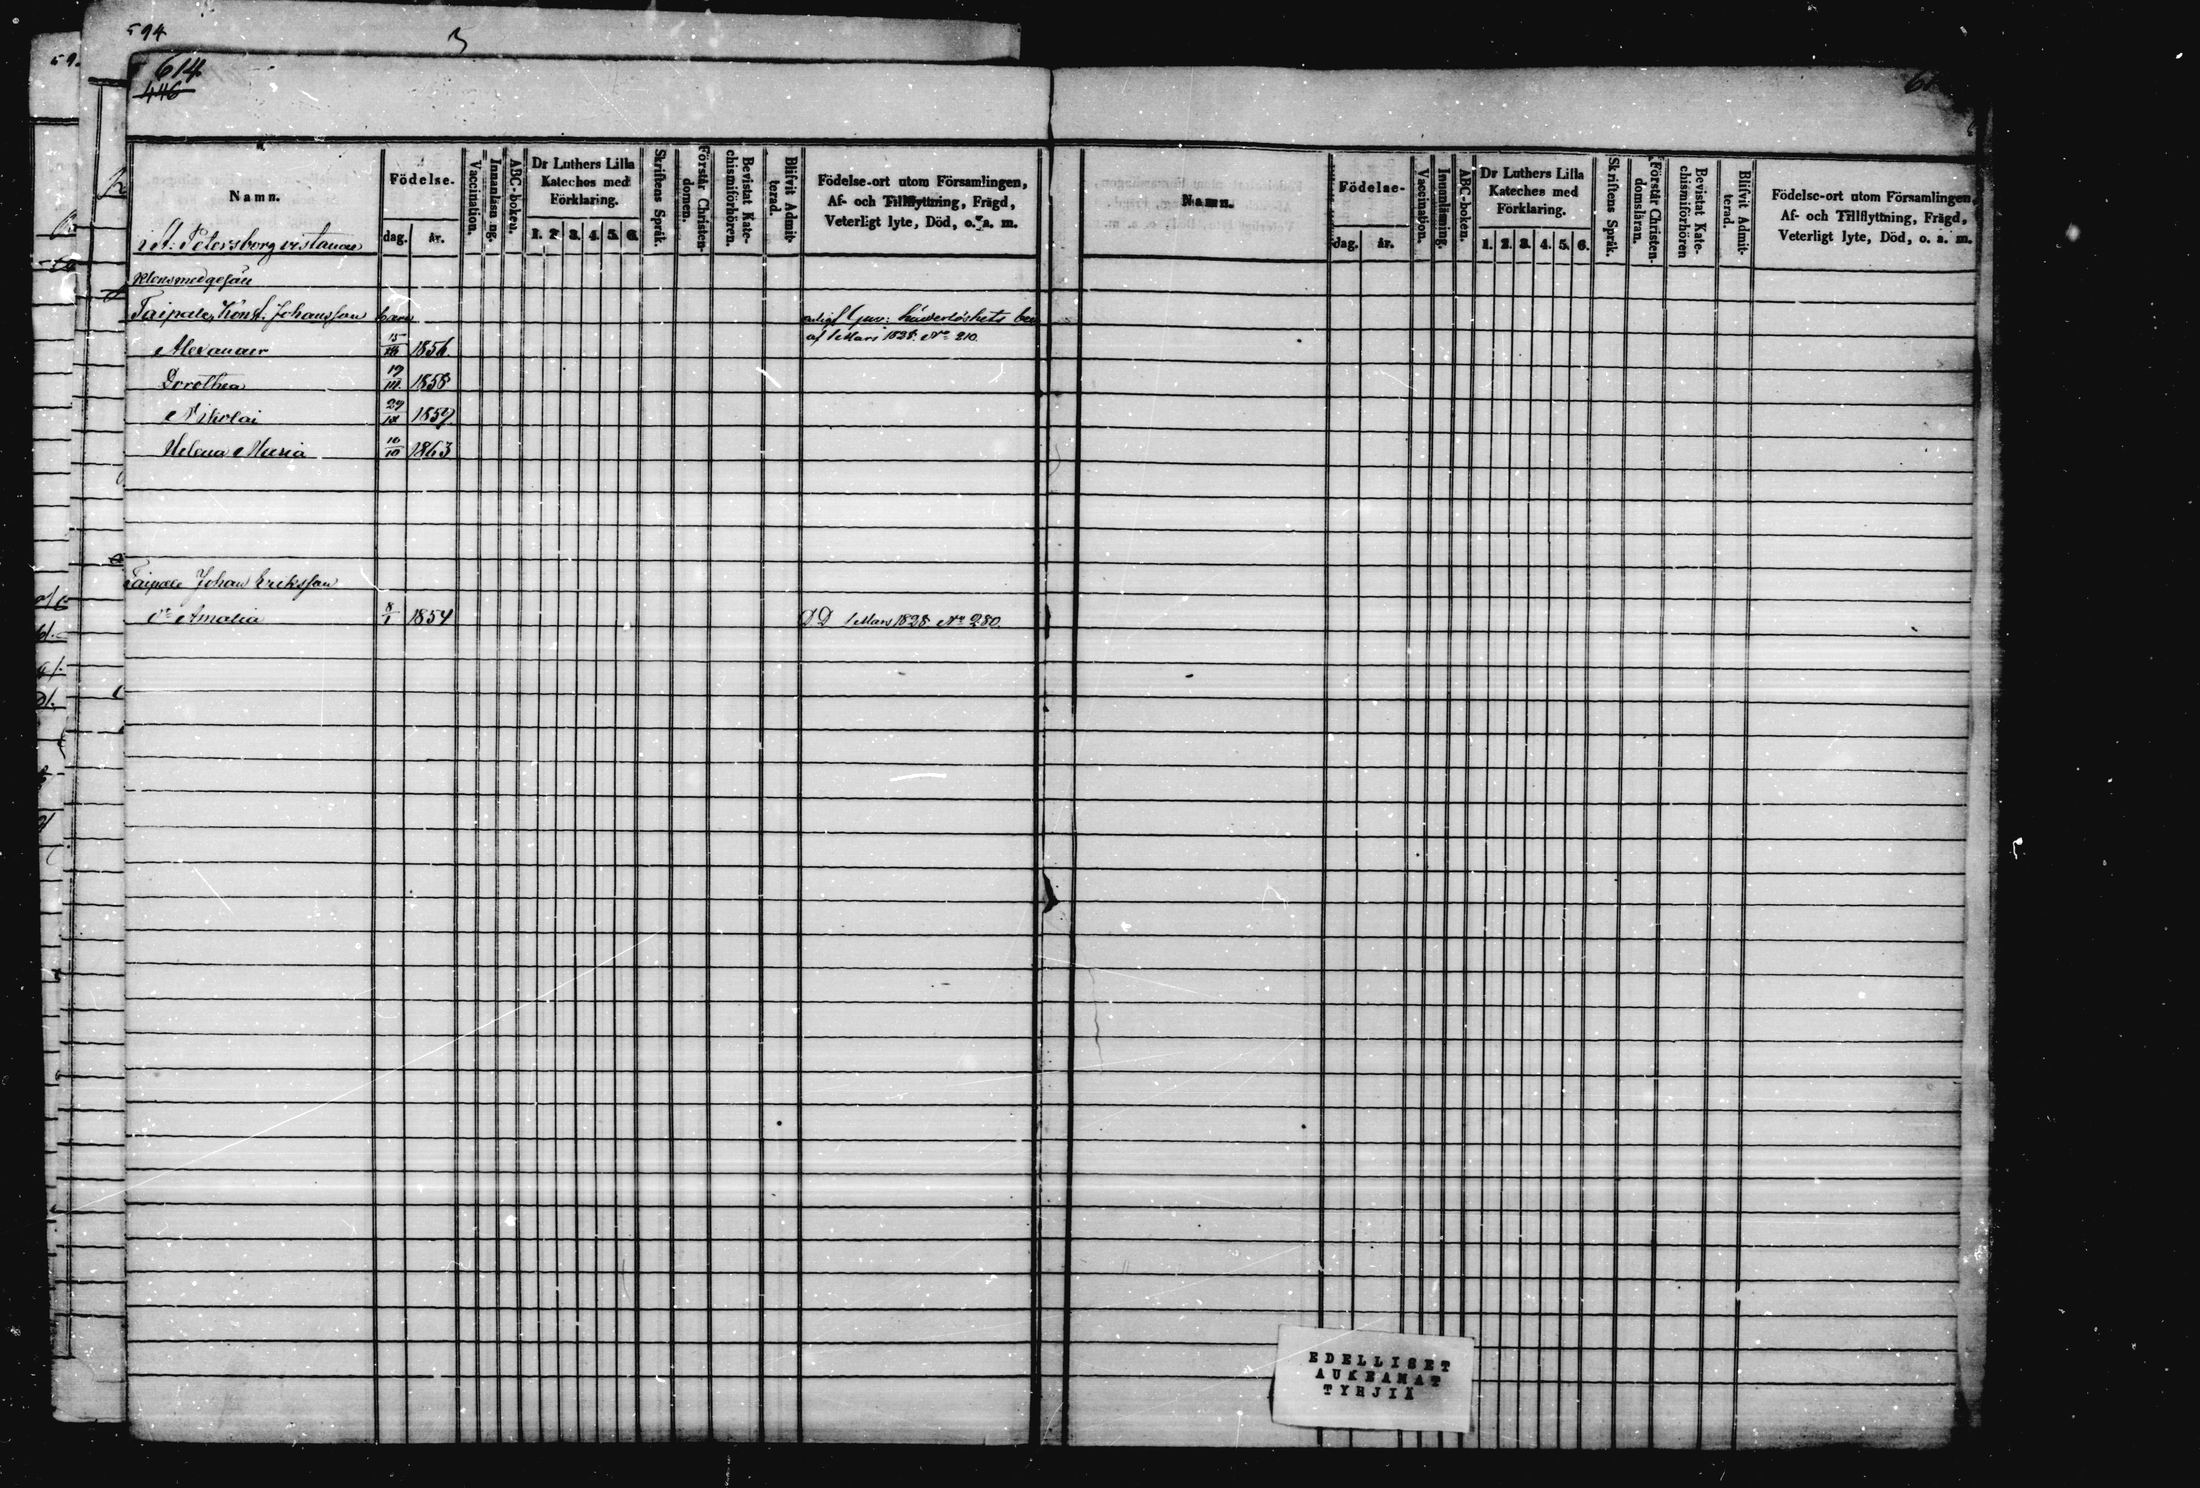 594
3
59
614
446
Namn.
Födelse-
dag.
år.
Vaccination.
Innanläsning.
ABC-boken.
Dr Luthers Lilla
Kateches med
Förklaring.
1. 2. 3. 4. 5. 6.
Skriftens Språk.
Förstår Christen-
domen.
Bevistat Kate-
chismiförhören.
Blifvit Admit-
terad.
Födelse-ort utom Församlingen,
Af- och Tillflyttning, Frägd,
Veterligt lyte, Död, o. a. m.
i St. Petersborg vistande
Taipale, Konst. Johansson barn
enligt Guv:
af 1 Mars 1828. No 210.
Alexander 15 1856.
Dorothea 19 1858
Nikolai 29 1859
Helena Maria 10/10 1863
Taipale Johan Eriksson
Dr Amalia 8/1 1854
DD 1 Mars 1828. No 280.
Namn.
Födelse-
dag.
år.
Vaccination.
Innanläsning.
ABC-boken.
Dr Luthers Lilla
Kateches med
Förklaring.
1. 2. 3. 4. 5. 6.
Skriftens Språk.
Förstår Christen-
domsläran.
Bevistat Kate-
chismiförhören
Blifvit Admit-
terad.
Födelse-ort utom Församlingen,
Af- och Tillflyttning, Frägd,
Veterligt lyte, Död, o. a. m.
EDELLISET
AUKEAMAT
TYHJIÄ